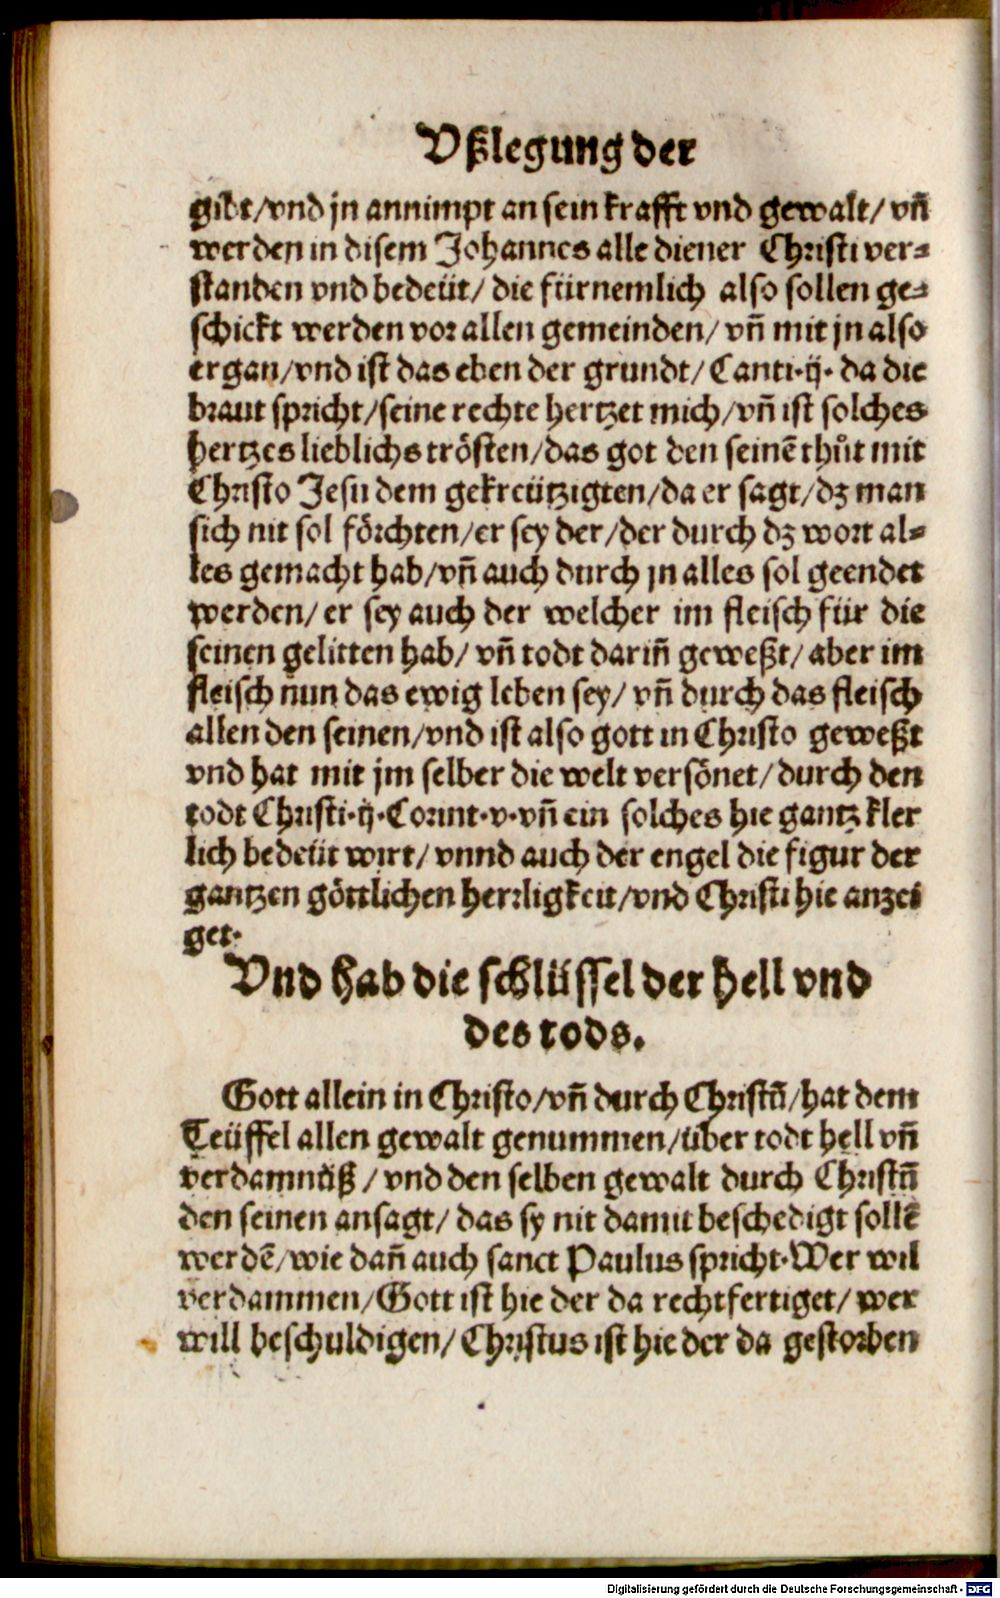 Vßlegung der
gibt/vnd jn annimpt an sein krafft vnd gewalt/ vñ
werden in disem Johannes alle diener Christi ver-
standen vnd bedeüt/ die fürnemlich also sollen ge-
schickt werden vor allen gemeinden/ vñ mit jn also
ergan/vnd ist das eben der grundt/ Canti.ij. da die
braut spricht/seine rechte hertzet mich/vñ ist solches
hertzes lieblichs trösten/das got den seinẽ thůt mit
Christo Jesu dem gekreützigten/da er sagt/dz man
sich nit sol förchten/er sey der/der durch dz wort al-
les gemacht hab/vñ auch durch jn alles sol geendet
werden/ er sey auch der welcher im fleisch für die
seinen gelitten hab/ vñ todt dariñ geweßt/ aber im
fleisch nun das ewig leben sey/ vñ durch das fleisch
allen den seinen/vnd ist also gott in Christo geweßt
vnd hat mit jm selber die welt versönet/durch den
todt Christi.ij.Corint.v.vñ ein solches hie gantz kler
lich bedeüt wirt/ vnnd auch der engel die figur der
gantzen göttlichen herrligkeit/vnd Christi hie anzei
get.
Vnd hab die schlüssel der hell vnd
des tods.
Gott allein in Christo/vñ durch Christũ/hat dem
Teüffel allen gewalt genummen/über todt hell vñ
verdamnüß/vnd den selben gewalt durch Christũ
den seinen ansagt/ das sy nit damit beschedigt sollẽ
werdẽ/wie dañ auch sanct Paulus spricht.Wer wil
verdammen/Gott ist hie der da rechtfertiget/ wer
will beschuldigen/ Christus ist hie der da gestorben
Digitalisierung gefördert durch die Deutsche Forschungsgemeinschaft - DFG